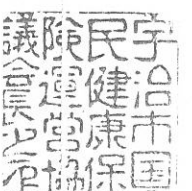 宇治市国
民健康保
険運営協
議会員之印